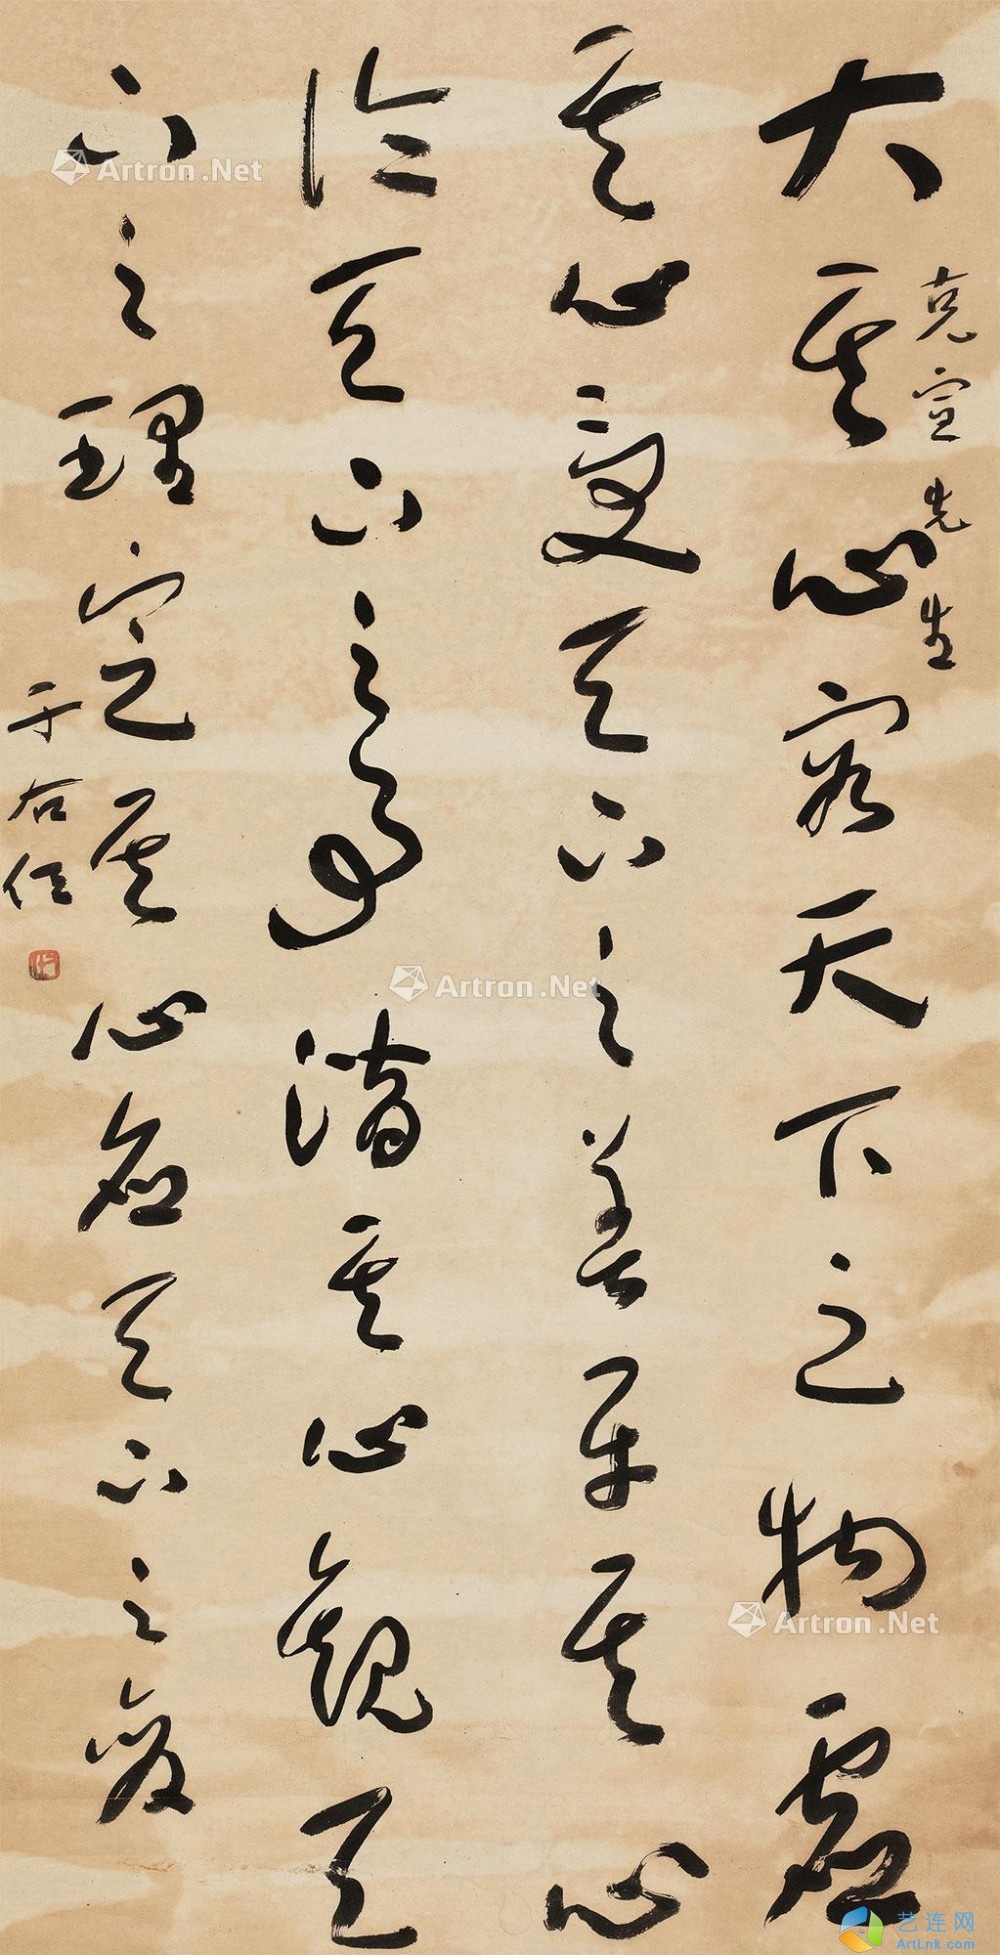 克宣先生
大其心容天下之物虛
其心受天下之善平其心
論天下之事潛其心觀天
下之理定其心應天下之變
于右任
Artron.Net
Artron.Net
Artron.Net
艺连网
ArtLnk.com